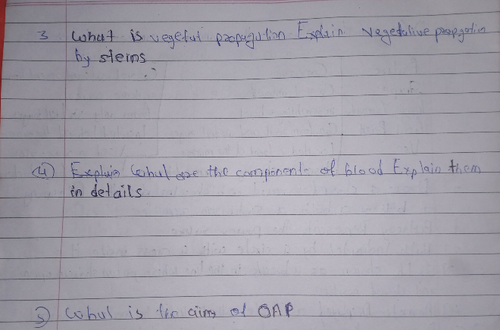 3 What is vegeful propagation Explain vegetative propgation
by stems
(4) Explain what are the component of blood Explain them
in details
5) What is the aims of OAP